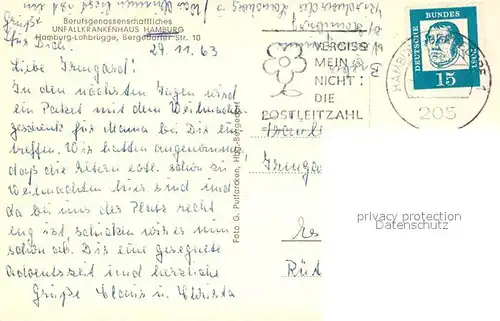 Grüße
für Dich.
Berufsgenossenschaftliches
UNFALLKRANKENHAUS HAMBURG
Hamburg-Lohbrügge, Bergedorfer Str. 10
29.11.63
Liebe Irmgard!
In den nächsten Tagen wird
ein Paket mit dem Weihnachts
geschenk für Mama bei Dir ein
treffen. Wir hatten angenommen
daß die Eltern evtl. schon zu
Weihnachten hier sind und
da bei uns der Platz recht
eng ist, schicken wir es nun
schon ab. Dir eine gesegnete
Adventszeit und herzliche
Grüße Claus und Christa
Foto G. Puttarcken, Hbg.-Bergedorf
VERGISS
MEIN
NICHT:
DIE
POSTLEITZAHL
DEUTSCHE BUNDESPOST
15
HAMBURG
205
Irmgard
privacy protection
Datenschutz